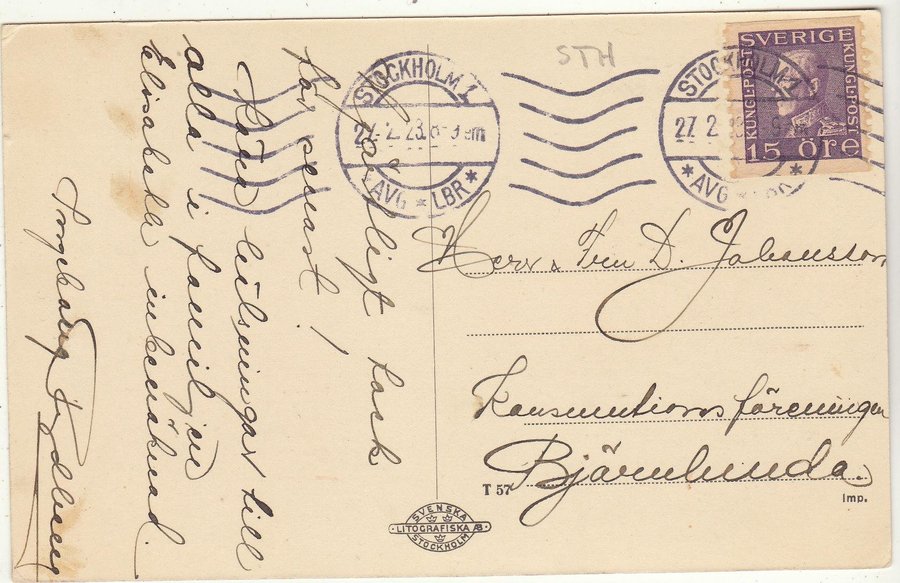 Hjärtligt tack
för senast!
Bästa hälsningar till
alla i familjen
Elisabeth inberäknad.
Ingeborg Rydberg
STH
STOCKHOLM 1
27. 2. 28. 8-9 em
* AVG * LBR *
STOCKHOLM 1
27. 2
* AVG *
SVERIGE
KUNGL·POST
KUNGL·POST
15 ÖRE
Herr & Fru D. Johansson
Konsumtionsföreningen
Björnlunda.
T 57
Imp.
SVENSKA
LITOGRAFISKA AB
STOCKHOLM